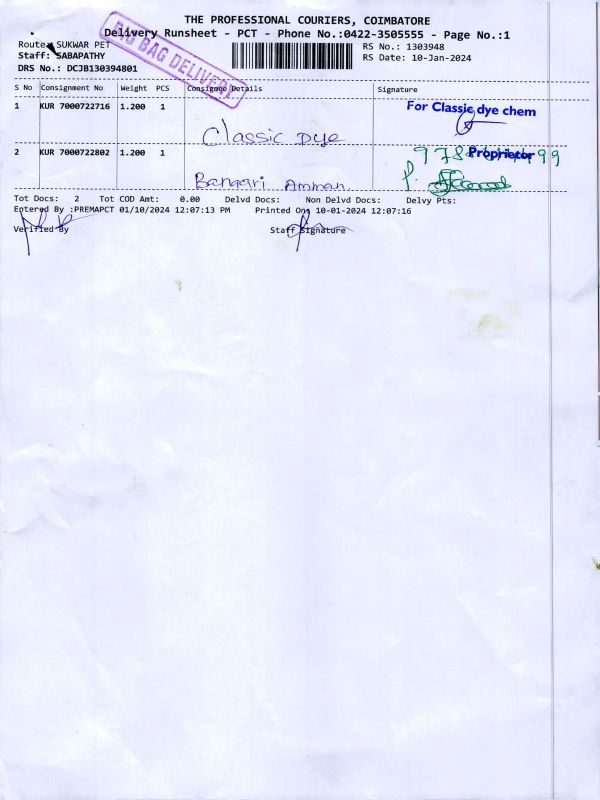 THE PROFESSIONAL COURIERS, COIMBATORE
Delivery Runsheet - PCT - Phone No.:0422-3505555 - Page No.:1
Route: SUKWAR PET
RS No.: 1303948
Staff: SABAPATHY
RS Date: 10-Jan-2024
DRS No.: DCJB130394801
BIG BAG DELIVERY
S No Consignment No Weight PCS Consignee Details Signature
1 KUR 7000722716 1.200 1
For Classic dye chem
Classic Dye
2 KUR 7000722802 1.200 1
Proprietor
Bannari Amman
Tot Docs: 2 Tot COD Amt: 0.00 Delvd Docs: Non Delvd Docs: Delvy Pts:
Entered By :PREMAPCT 01/10/2024 12:07:13 PM Printed On: 10-01-2024 12:07:16
Verified By Staff Signature